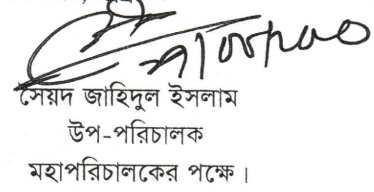 সৈয়দ জাহিদুল ইসলাম
উপ-পরিচালক
মহাপরিচালকের পক্ষে।